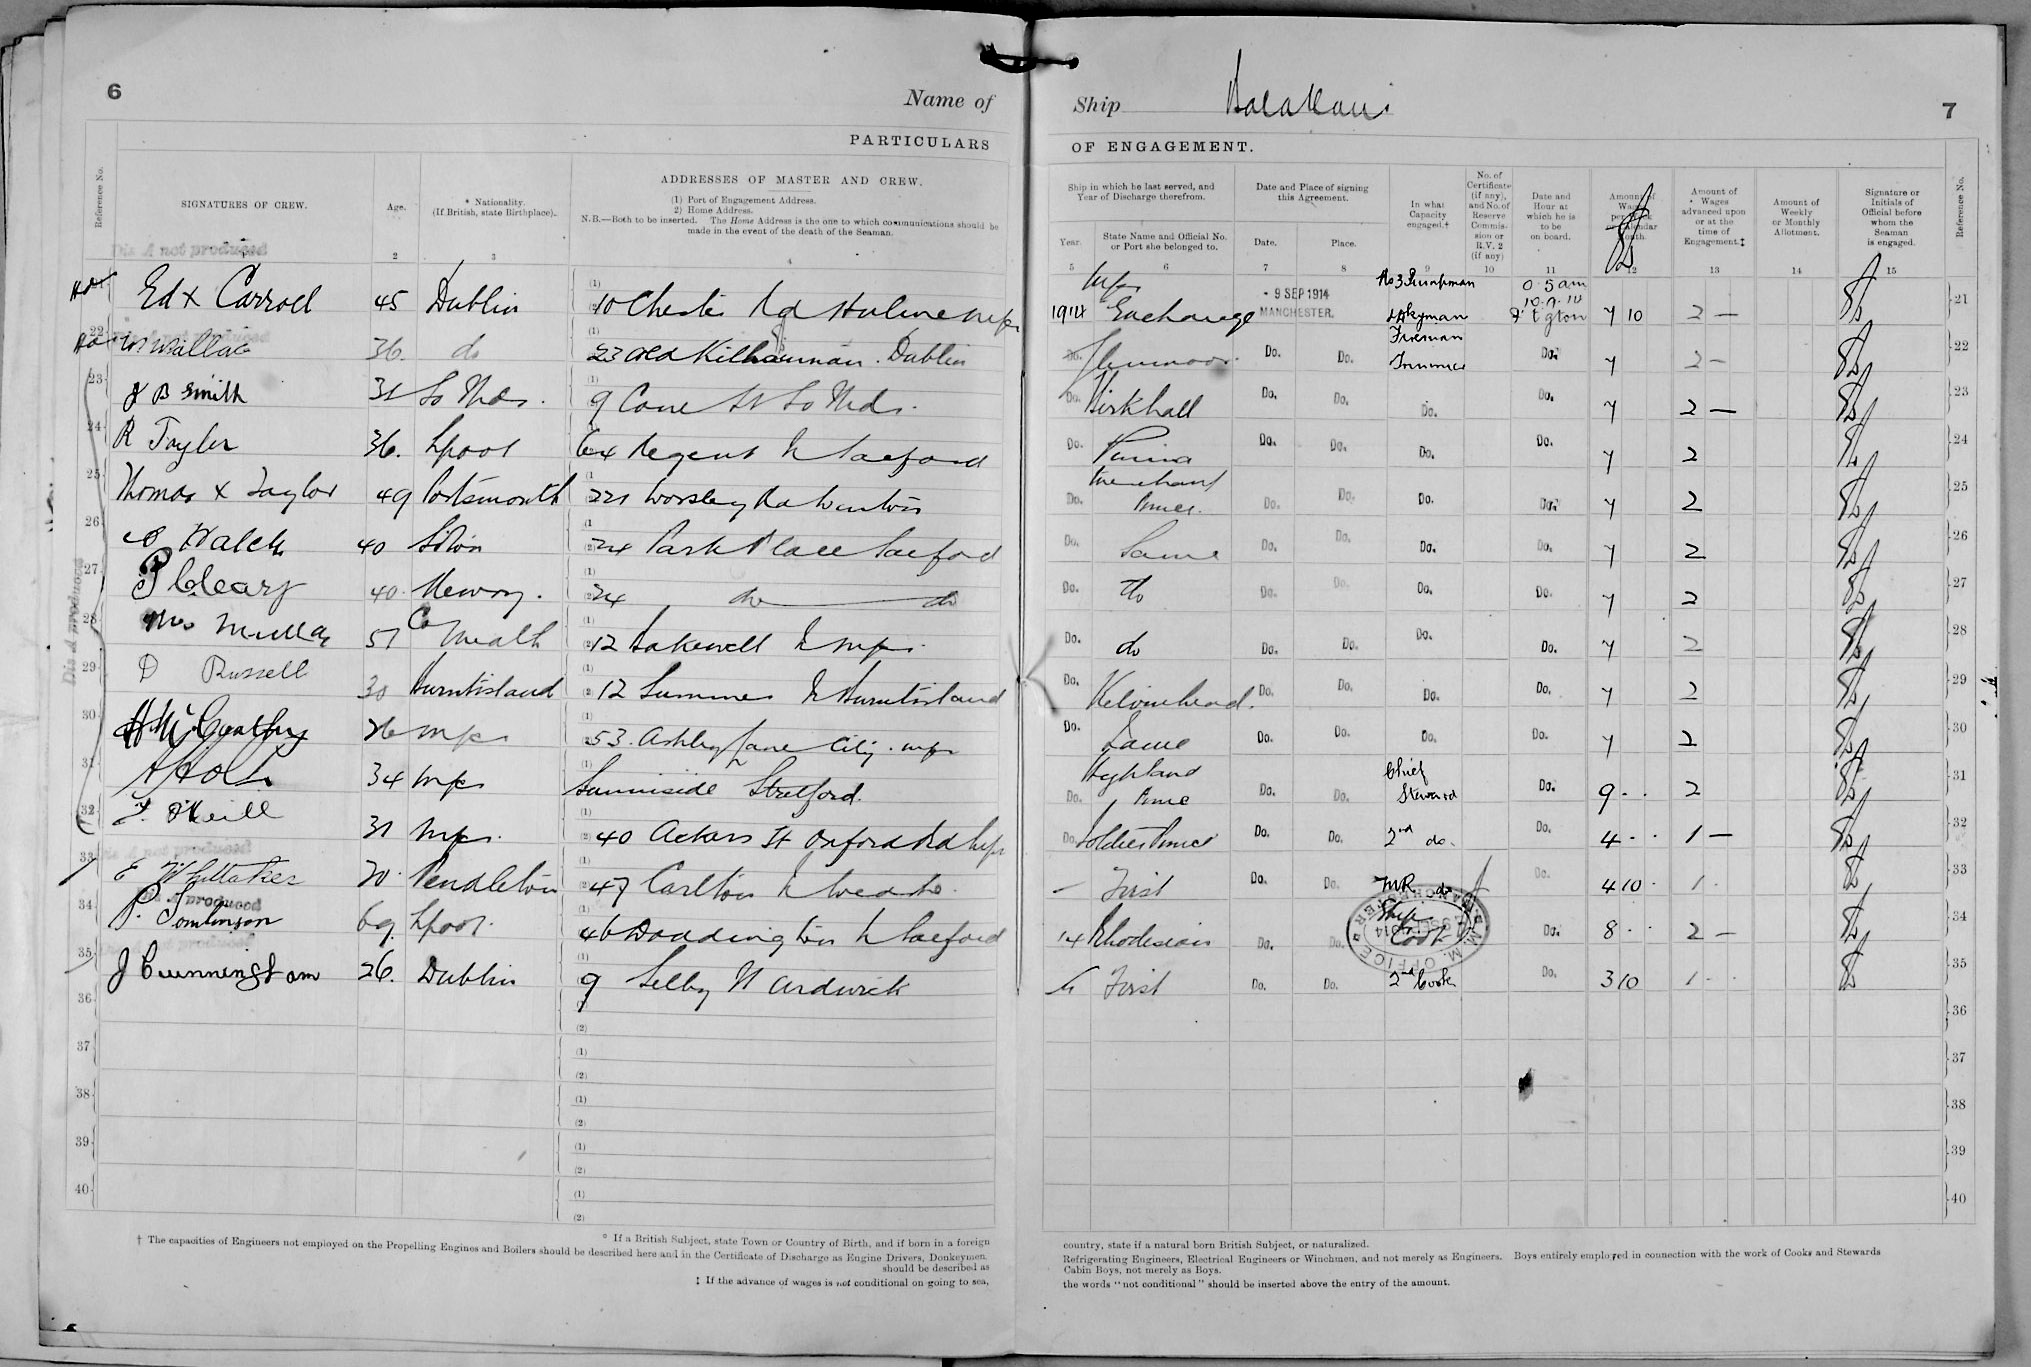 6
Name of
PARTICULARS
Reference No.
SIGNATURES OF CREW.
Age.
* Nationality.
(If British, state Birthplace).
ADDRESSES OF MASTER AND CREW.
(1) Port of Engagement Address.
2) Home Address.
N.B.—Both to be inserted. The Home Address is the one to which communications should be
made in the event of the death of the Seaman.
2
3
4
Dis A not produced
Ed x Carroll 45 Dublin 10 Chester Rd Hulme
22 W Wallace 36. do 23 Old Kilmainham. Dublin
23 J B Smith So Shds. 9 Cone St So Shds.
24 R Taylor 36. Lpool 64 Regent St Salford
25 Thomas x Taylor 49 Portsmouth 221 Worsley Rd Winton
26 Walch 40 24 Park Place Salford
27 P Cleary 40. Newry. 24 do do
28 Thos Mullay 57 Co Meath 12 St
29 D Russell 30 Burntisland 12 Summer St Burntisland
30 H McCarthy 26 53. Ashley Lane City.
31 A Holt 34 Sunniside Stretford.
32 F. O'Neill 31 40 Ackers St Oxford Rd
33 E Whittaker 20. Pendleton 47 Carlton St
34 P. Tomlinson 69. Lpool. 46 Doddington St Salford
35 J Cunningham 26. Dublin 9 Selby St Ardwick
36
37
38
39
40
* If a British Subject, state Town or Country of Birth, and if born in a foreign
† The capacities of Engineers not employed on the Propelling Engines and Boilers should be described here and in the Certificate of Discharge as Engine Drivers, Donkeymen,
should be described as
‡ If the advance of wages is not conditional on going to sea,
Ship
7
OF ENGAGEMENT.
Ship in which he last served, and
Year of Discharge therefrom.
Year.
State Name and Official No.
or Port she belonged to.
Date and Place of signing
this Agreement.
Date.
Place.
In what
Capacity
engaged.†
No. of
Certificate
(if any),
and No. of
Reserve
Commis-
sion or
R.V. 2
(if any)
Date and
Hour at
which he is
to be
on board.
Amount of
Wages
advanced upon
or at the
time of
Engagement.‡
Amount of
Weekly
or Monthly
Allotment.
Signature or
Initials of
Official before
whom the
Seaman
is engaged.
Reference No.
5 6 7 8 9 10 11 12 13 14 15
1914 Exchange - 9 SEP 1914 MANCHESTER. No 3 Pumpman 7 10 2 — 21
Do. Do. Do. Fireman Trimmer Do. 7 2 – 22
Do. Kirkhall Do. Do. Do. Do. 7 2 — 23
Do. Do. Do. Do. Do. 7 2 24
Do. Merchant Prince. Do. Do. Do. Do. 7 2 25
Do. Same Do. Do. Do. Do. 7 2 26
Do. do Do. Do. Do. Do. 7 2 27
Do. do Do. Do. Do. Do. 7 2 28
Do. Kelvinhead. Do. Do. Do. Do. 7 2 29
Do. Same Do. Do. Do. Do. 7 2 30
Do. Highland Prince Do. Do. Chief Steward Do. 9 - - 2 31
Do. Soldier Prince Do. Do. 2nd do. Do. 4 - - 1 — 32
– First Do. Do. do Do. 4 10 - 1 - 33
14 Rhodesian Do. Do. Ships Cook Do. 8 - - 2 – 34
First Do. Do. 2nd Cook Do. 3 10 1 - - 35
36
37
38
39
40
country, state if a natural born British Subject, or naturalized.
Refrigerating Engineers, Electrical Engineers or Winchmen, and not merely as Engineers. Boys entirely employed in connection with the work of Cooks and Stewards
Cabin Boys, not merely as Boys.
the words "not conditional" should be inserted above the entry of the amount.